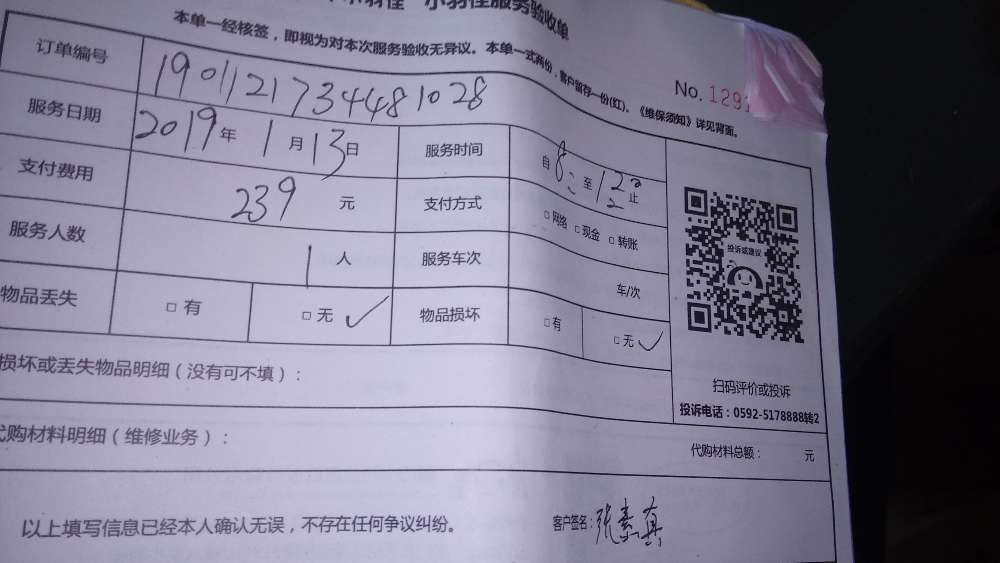 小羽佳服务验收单
本单一经核签，即视为对本次服务验收无异议。本单一式两份，客户留存一份(红)。《维保须知》详见背面。
No. 1291
订单编号 190112173448 1028
服务日期 2019年 1月13日 服务时间 自8:至12 止
支付费用 239 元 支付方式 □网络 □现金 □转账
服务人数 1人 服务车次 车/次
投诉或建议
物品丢失 □有 □无 ✓ 物品损坏 □有 □无 ✓
损坏或丢失物品明细（没有可不填）：
扫码评价或投诉
投诉电话：0592-5178888转2
代购材料明细（维修业务）：
代购材料总额： 元
以上填写信息已经本人确认无误，不存在任何争议纠纷。
客户签名：张素真